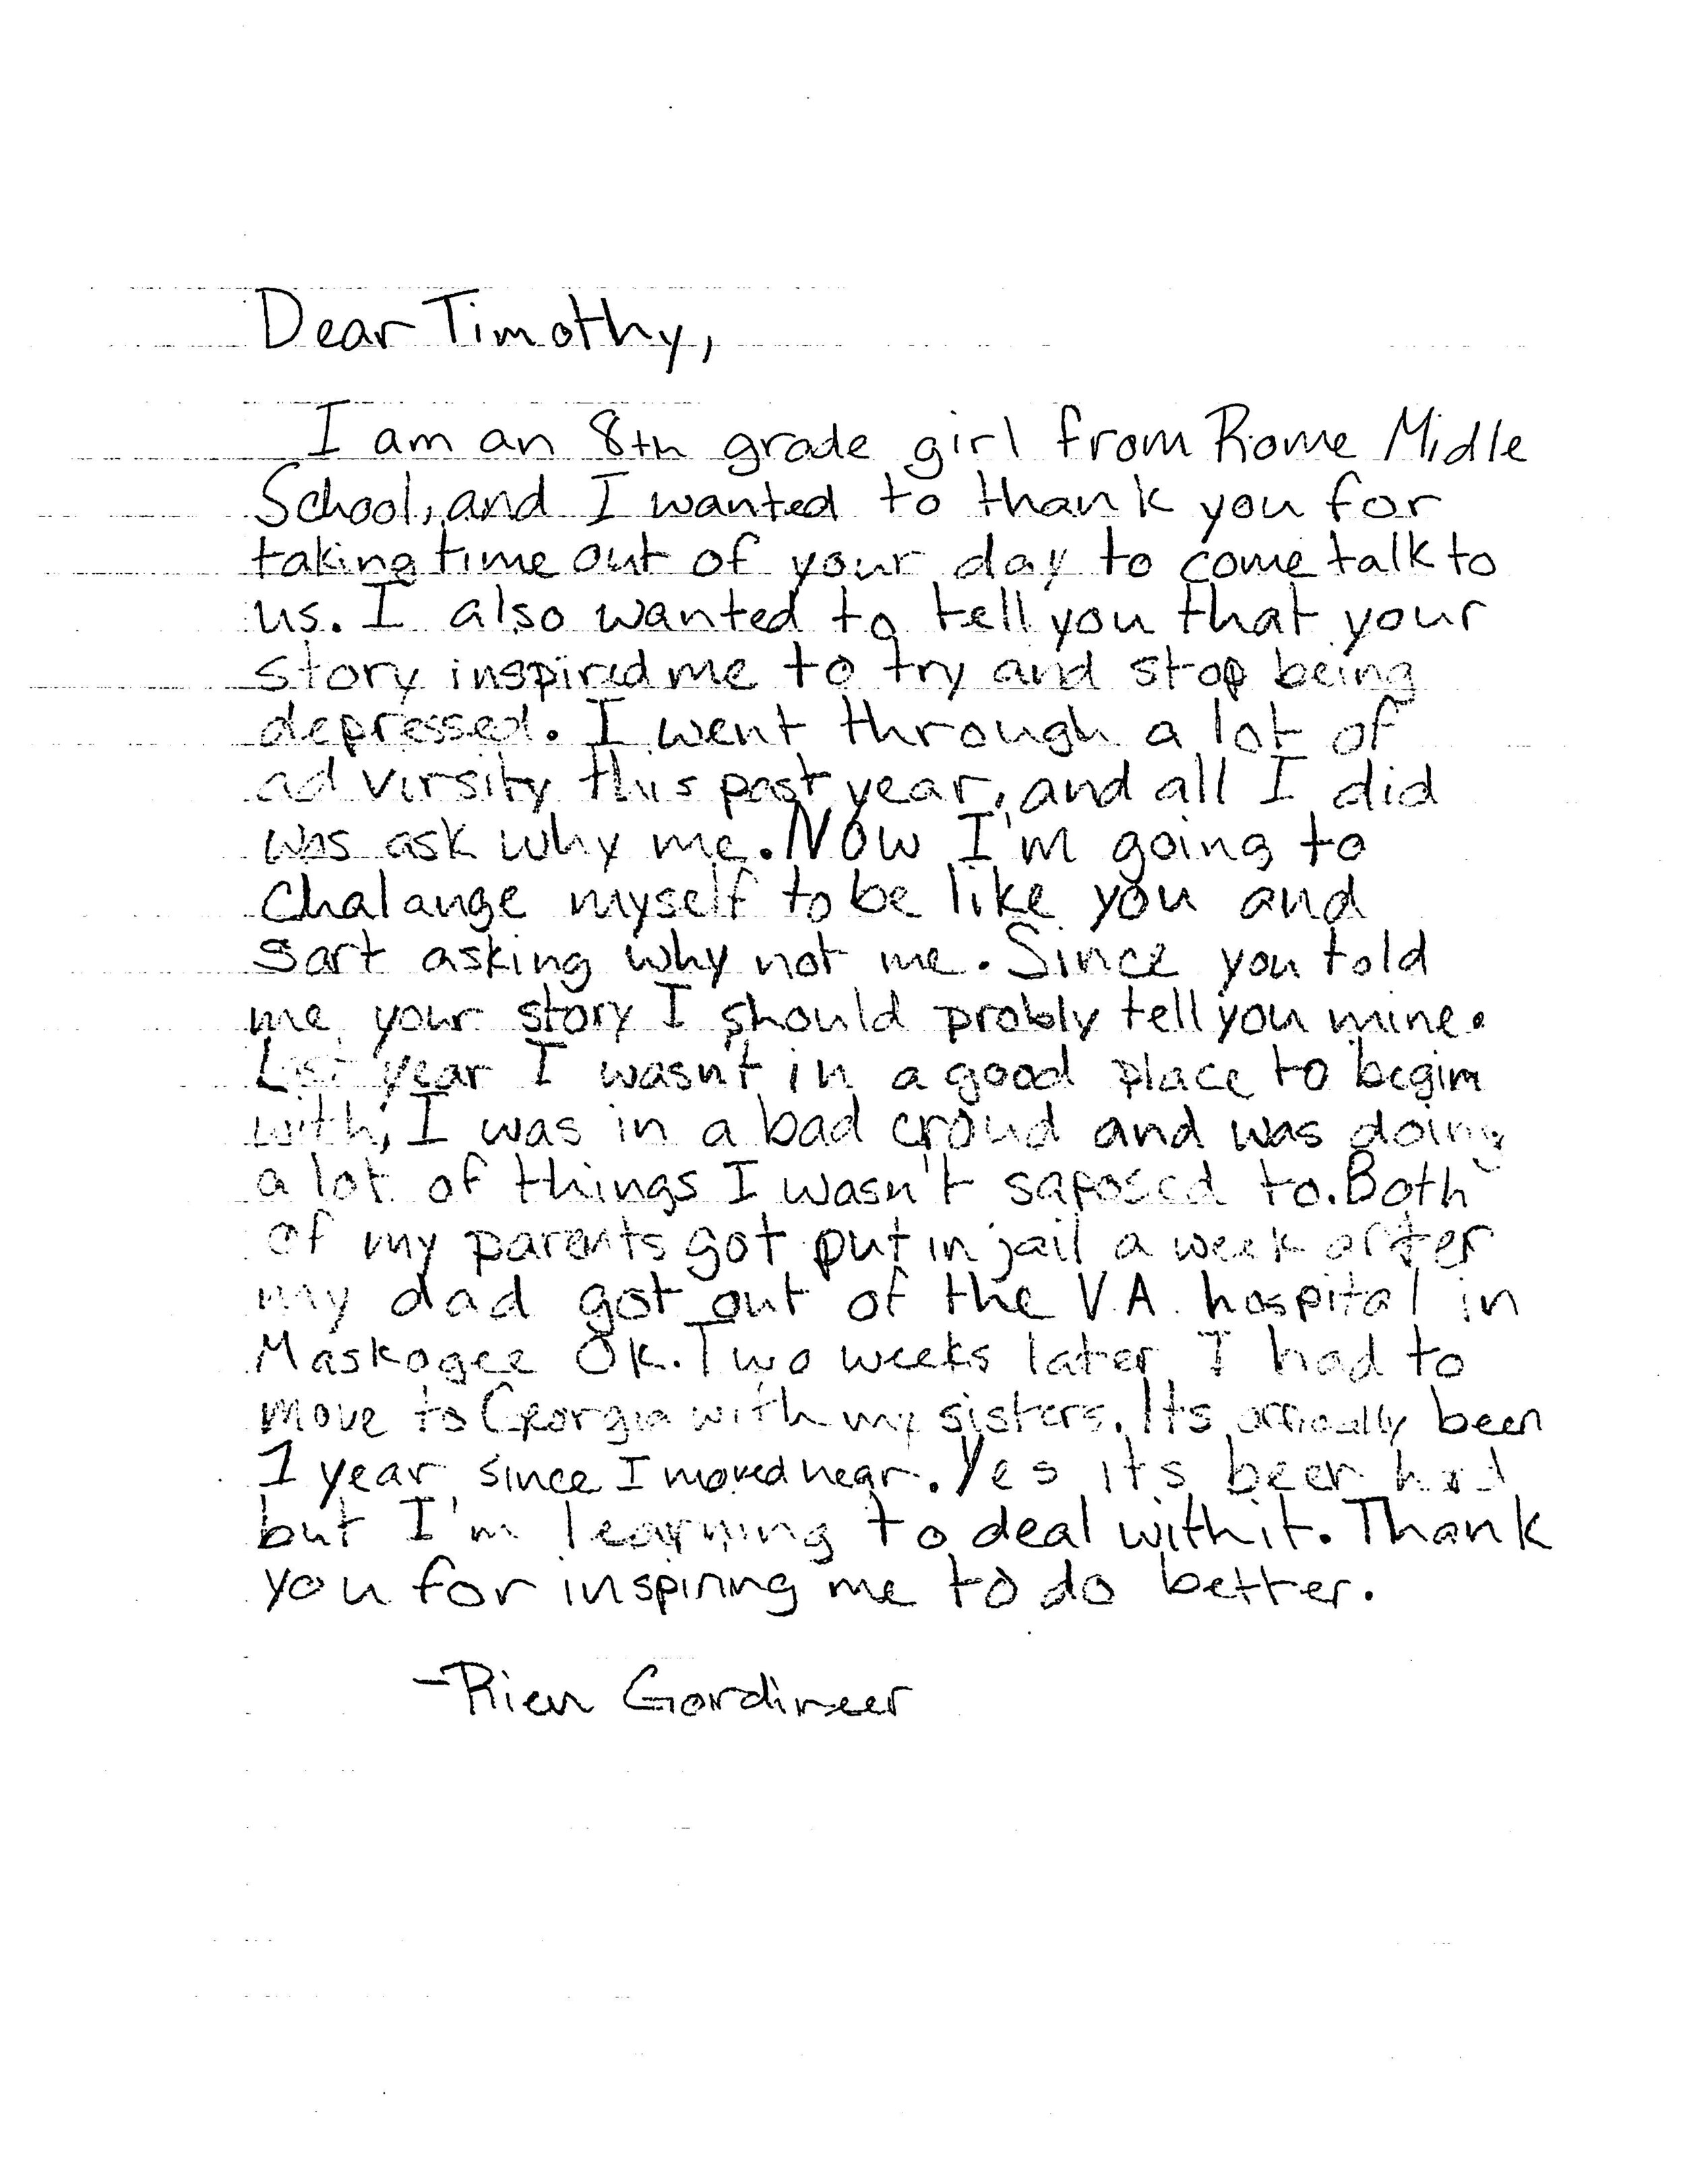 Dear Timothy,
I am an 8th grade girl from Rome Midle
School, and I wanted to thank you for
taking time out of your day to come talk to
us. I also wanted to tell you that your
story inspired me to try and stop being
depressed. I went through a lot of
advirsity this past year, and all I did
was ask why me. Now I'm going to
chalange myself to be like you and
sart asking why not me. Since you told
me your story I should probly tell you mine.
Last year I wasn't in a good place to begin
with, I was in a bad croud and was doing
a lot of things I wasn't saposed to. Both
of my parents got put in jail a week after
my dad got out of the V.A. hospital in
Maskogee OK. Two weeks later I had to
move to Georgia with my sisters. Its been
1 year since I moved hear. Yes its been hard
but I'm learning to deal with it. Thank
you for inspiring me to do better.
-Rien Gordineer